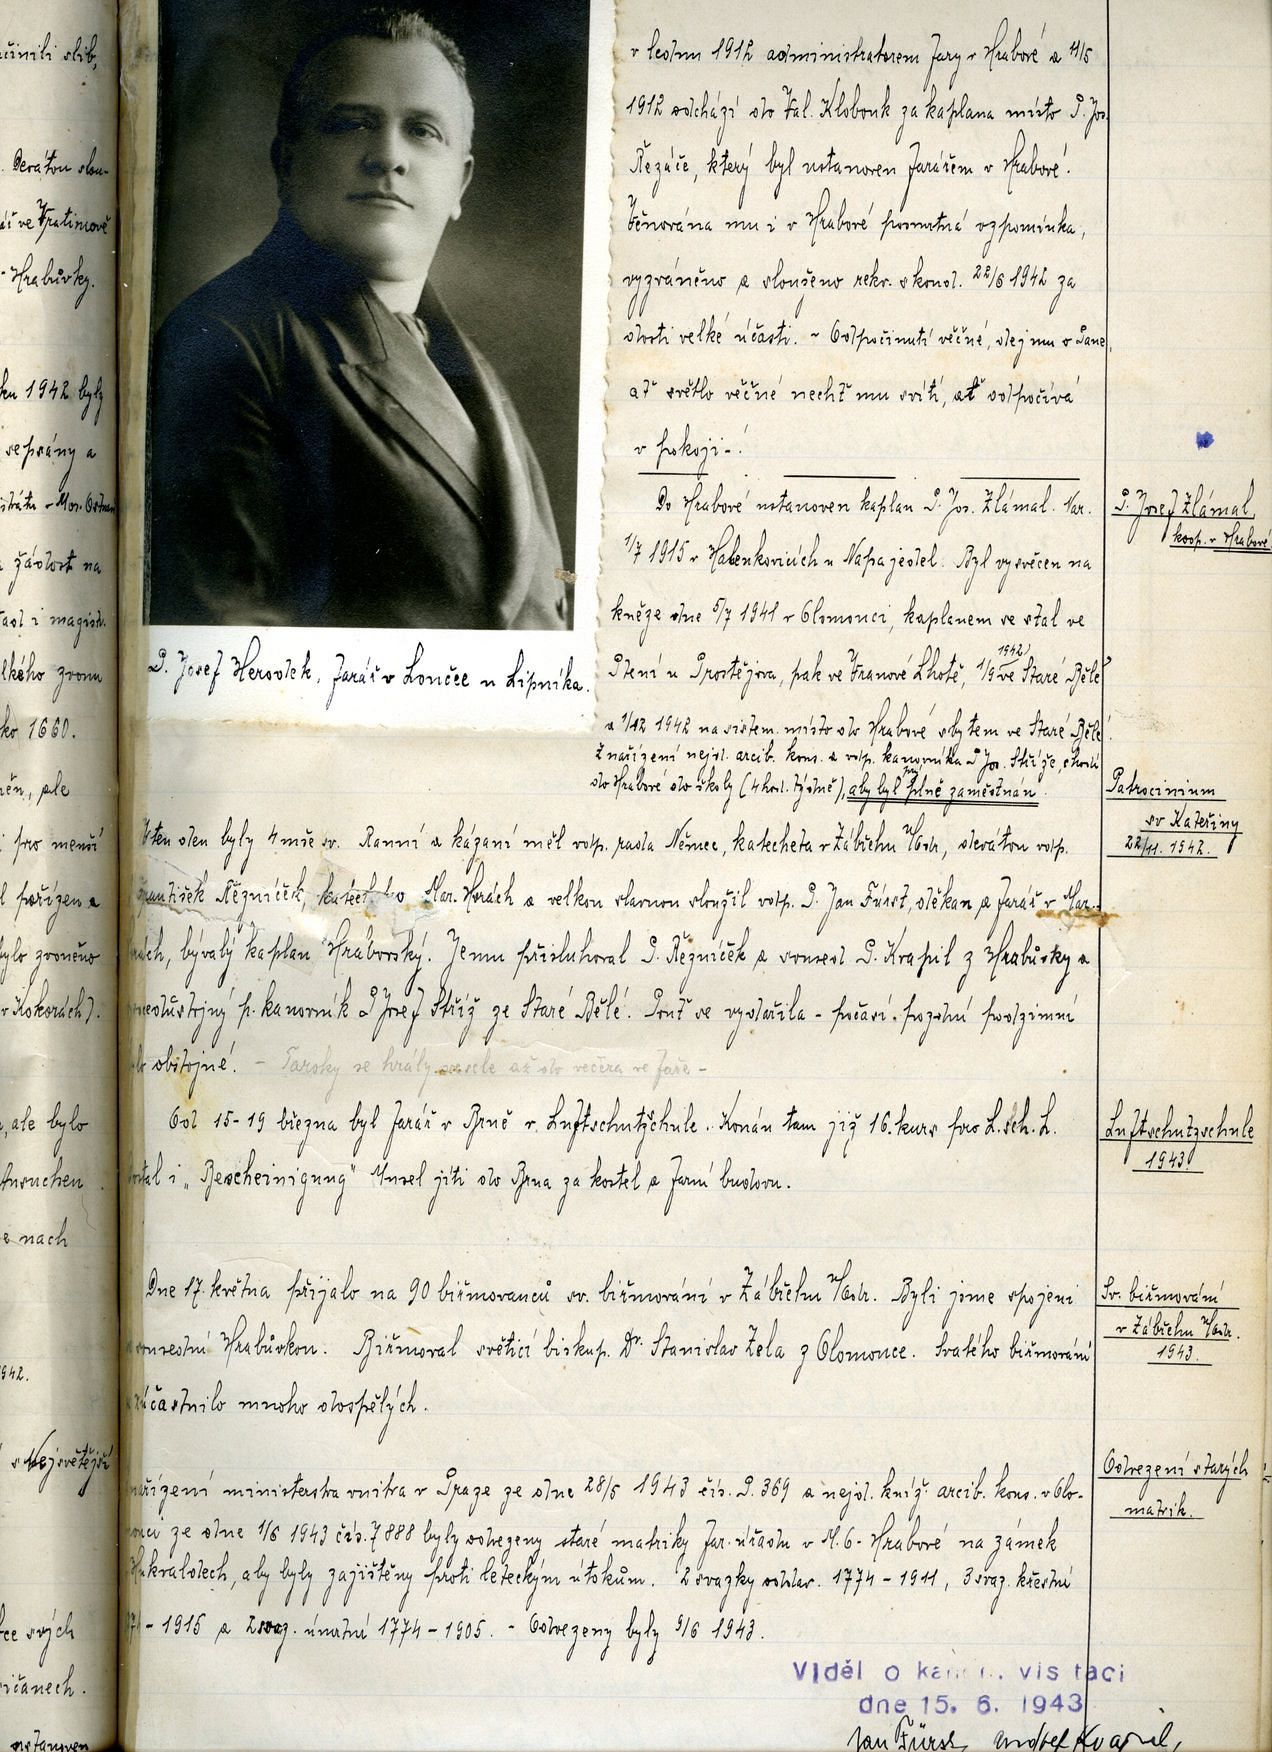 činili slib,
Devátou slou-
ve Vratimově
Hrabůvky.
ku 1942 byly
sepsány a
žádost na
i magistr.
lkého zvonu
ko 1660.
ale
pro menší
pořízen a
bylo zvoněno
v Kokorách).
, ale bylo
Ansuchen
e nach
1942.
s Nejsvětější
svých
ustanoven
v lednu 1912 administratorem fary v Hrabové a 4/5
1912 odchází do Val. Klobouk za kaplana místo P. Jos.
Řezáče, který byl ustanoven farářem v Hrabové.
Věnována mu i v Hrabové posmrtná vzpomínka,
vyzváněno a slouženo rekv. s kond. 22/6 1942 za
dosti velké účasti. - Odpočinutí věčné, dej mu o Pane,
ať světlo věčné nechť mu svítí, ať odpočívá
v pokoji-!
P. Josef Herovdek, farář v Loučce u Lipníka.
Do Hrabové ustanoven kaplan P. Jos. Zlámal. Nar.
1/7 1915 v Halenkovicích u Napajedel. Byl vysvěcen na
kněze dne 5/7 1941 v Olomouci, kaplanem se stal ve
Ptení u Prostějova, pak ve Vranové Lhotě, 1/9 1942 ve Staré Bělé
a 1/12 1942 na sistem. místo do Hrabové s bytem ve Staré Bělé.
Z nařízení nejd. arcib. kons. a vdp. kanovníka P Jos. Stříže, chodí
do Hrabové do školy (4 hod. týdně), aby byl prý plně zaměstnán.
P. Josef Zlámal,
koop. v Hrabové
Patrocinium
sv Kateřiny
22/11. 1942.
V ten den byly 4 mše sv. Ranní a kázaní měl vdp. rada Němec, katecheta v Zábřehu n/Odr, devátou vdp.
František Řezníček, katech. v Mar. Horách a velkou slavnou sloužil vdp. P. Jan Fürst, děkan a farář v Mar.
Horách, bývalý kaplan Hrabovský. Jemu přisluhoval P. Řezníček a soused P. Kvapil z Hrabůvky a
p. kanovník P Josef Stříž ze Staré Bělé. Pouť se vydařila - počasí pozdní podzimní
bylo obstojné. - Taroky se hrály vesele až do večera ve faře -
Od 15-19 března byl farář v Brně v Luftschutzschule. Konán tam již 16. kurs pro L. sch. L.
Dostal i „Bescheinigung" Musel jíti do Brna za kostel a farní budovu.
Luftschutzschule
1943
Dne 17. května přijalo na 90 biřmovanců sv. biřmování v Zábřehu n/Odr. Byli jsme spojeni
se sousední Hrabůvkou. Biřmoval světící biskup. Dr. Stanislav Zela z Olomouce. Svatého biřmování
zúčastnilo mnoho dospělých.
Sv. biřmování
v Zábřehu n/Odr.
1943.
Odvezení starých
matrik.
nařízení ministerstva vnitra v Praze ze dne 28/5 1943 čís. D. 369 a nejd. kníž. arcib. kons. v Olo-
mouci ze dne 1/6 1943 čís. 7888 byly odvezeny staré matriky far. úřadu v M. O- Hrabové na zámek
Hukvaldech, aby byly zajištěny proti leteckým útokům. 2 svazky oddav. 1774 - 1911, 3 svaz. křestní
1774 - 1915 a 2 svaz. úmrtní 1774 - 1905. - Odvezeny byly 9/6 1943.
Viděl o kanon. visitaci
dne 15. 6. 1943
Jan Fürst, Kvapil,